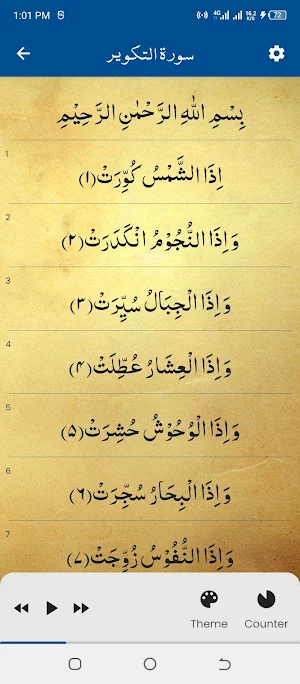 1:01 PM 4G 16.2 K/s 72
سورة التكوير
بِسْمِ اللهِ الرَّحْمٰنِ الرَّحِيْمِ
1
اِذَا الشَّمْسُ كُوِّرَتْ(۱)
2
وَ اِذَا النُّجُوْمُ انْكَدَرَتْ(۲)
3
وَ اِذَا الْجِبَالُ سُیِّرَتْ(۳)
4
وَ اِذَا الْعِشَارُ عُطِّلَتْ(۴)
5
وَ اِذَا الْوُحُوْشُ حُشِرَتْ(۵)
6
وَ اِذَا الْبِحَارُ سُجِّرَتْ(۶)
7
وَ اِذَا النُّفُوْسُ زُوِّجَتْ(۷)
Theme Counter